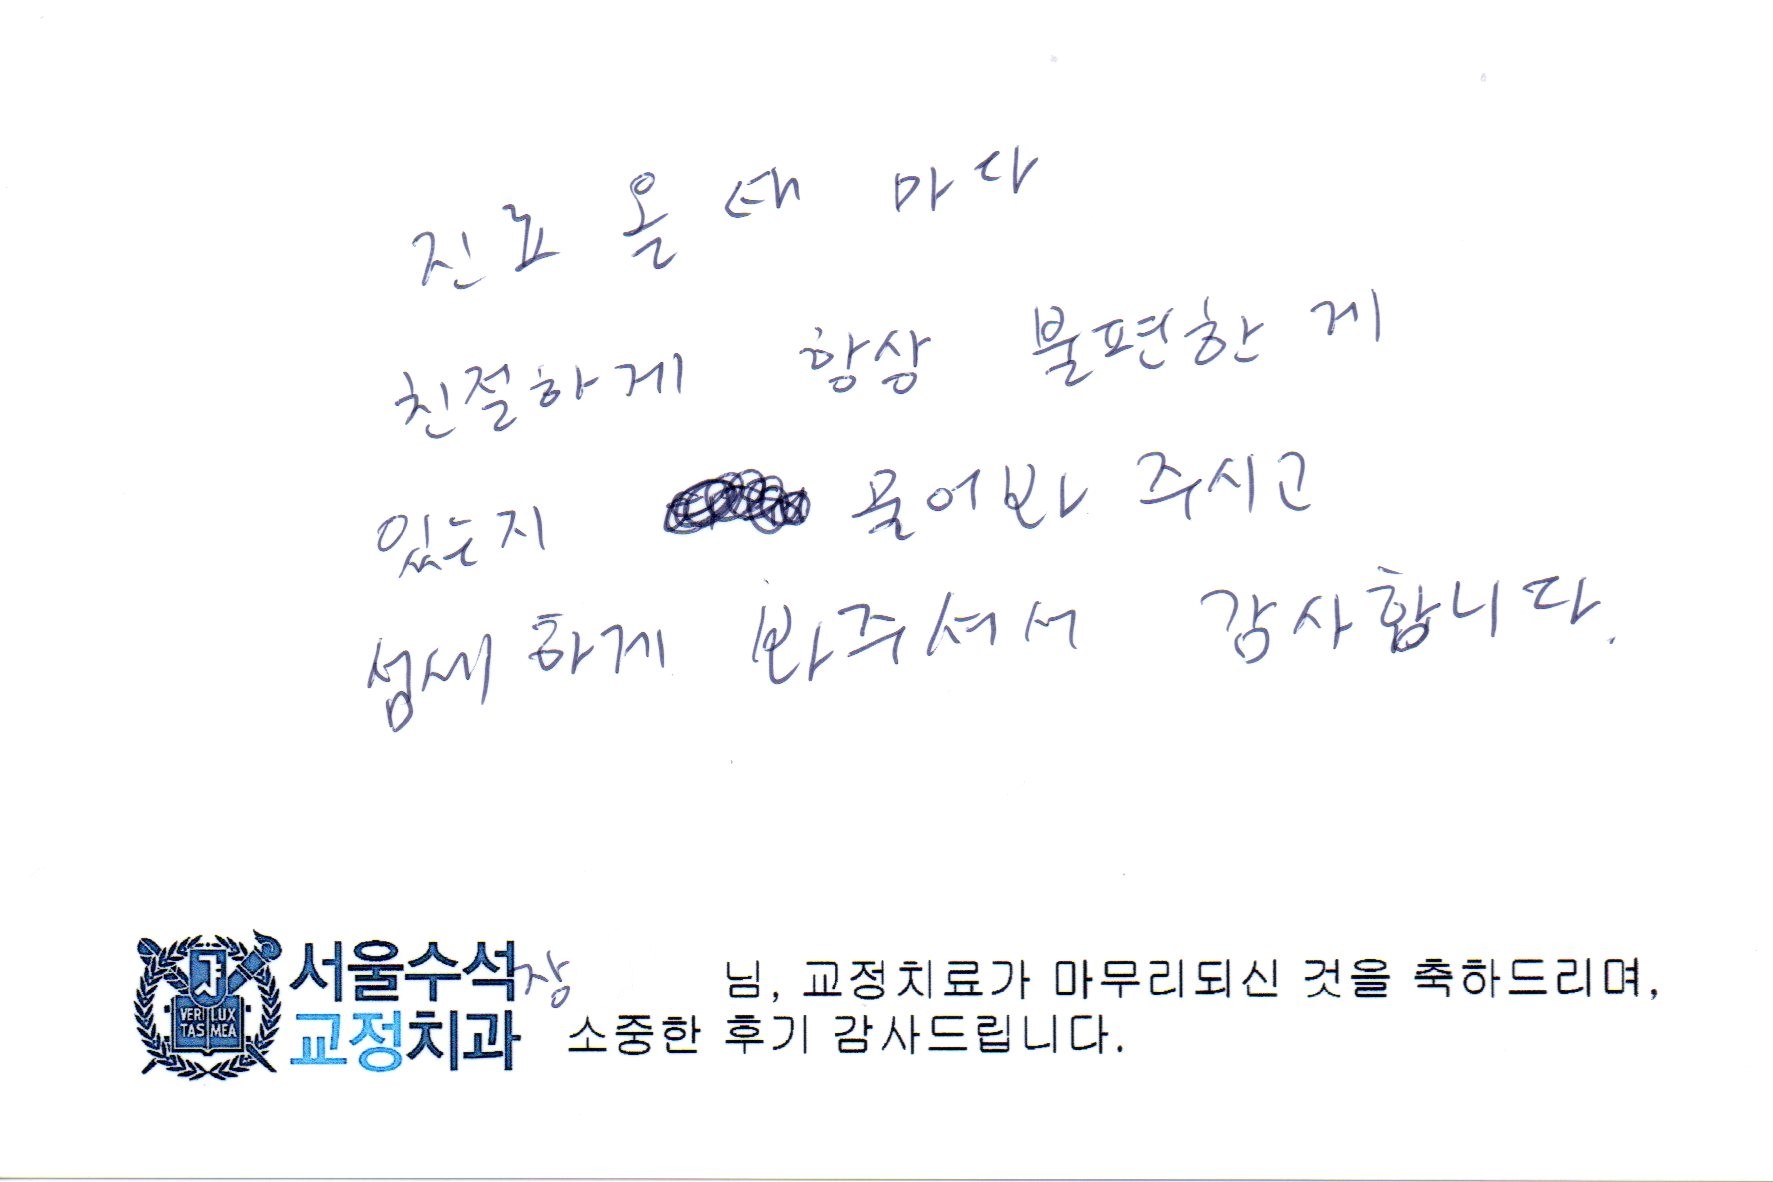 진료 올 때 마다
친절하게 항상 불편한 게
있는지 물어봐 주시고
섬세하게 봐주셔서 감사합니다.
서울수석 장 님, 교정치료가 마무리되신 것을 축하드리며,
교정치과 소중한 후기 감사드립니다.
VERI LUX
TAS MEA